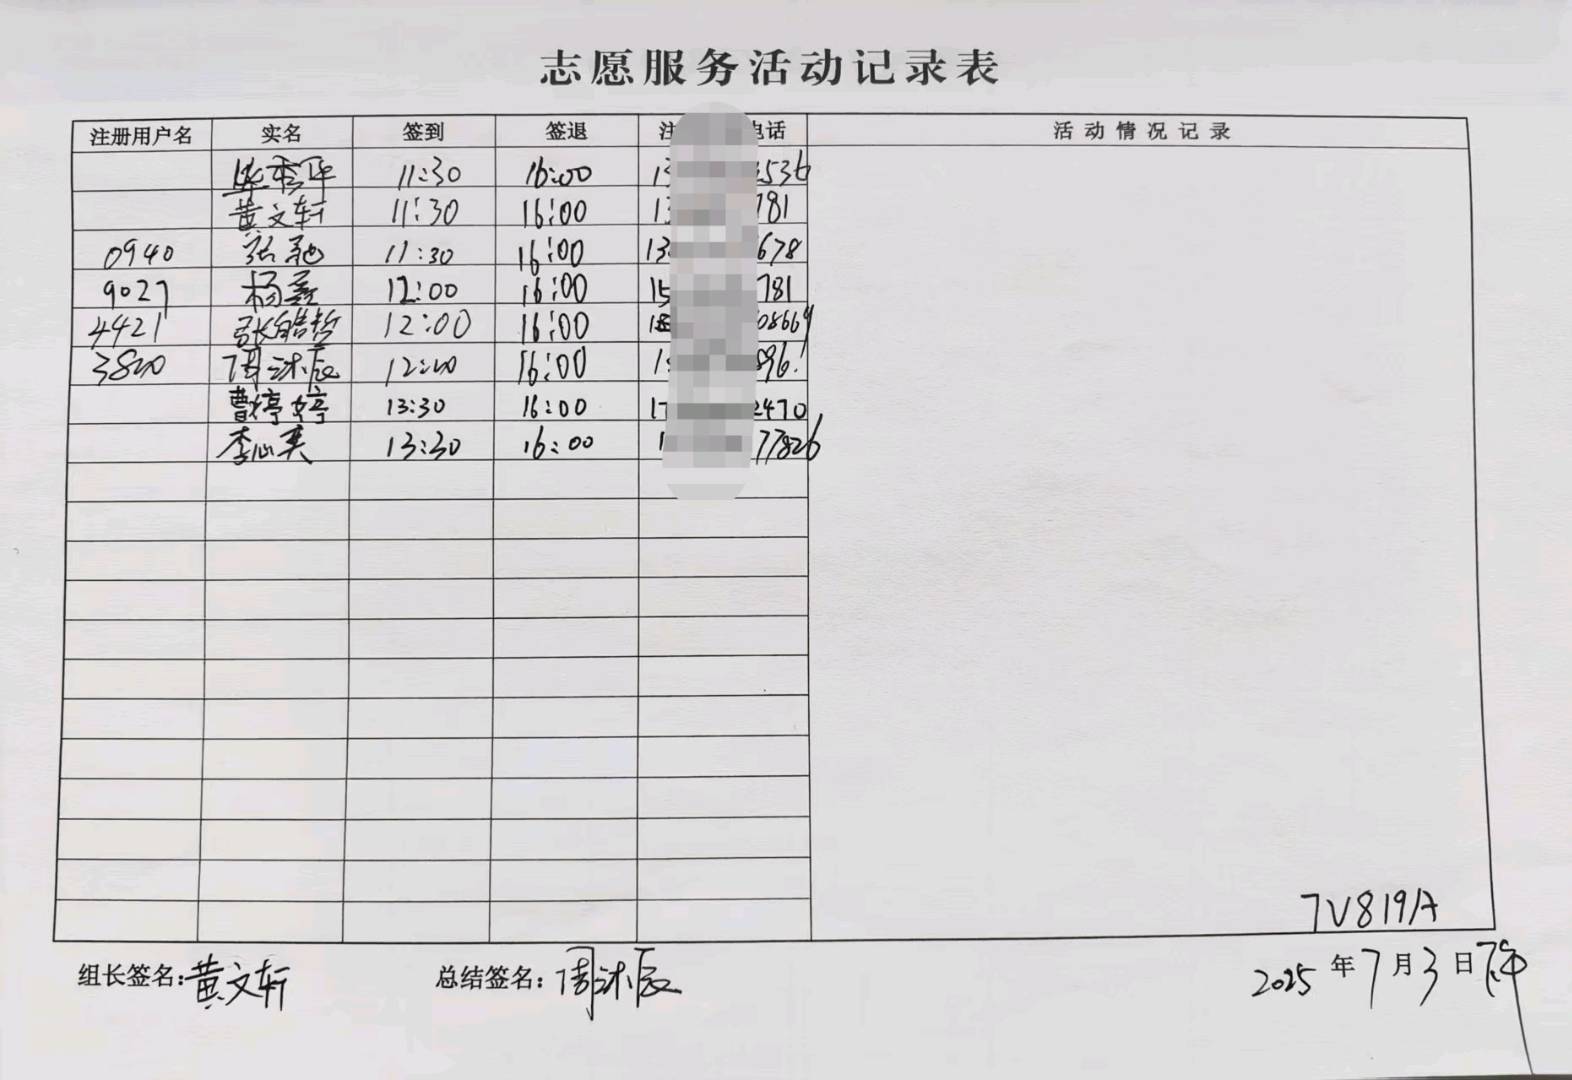 志愿服务活动记录表
注册用户名 实名 签到 签退 注 电话 活动情况记录
毕秀萍 11:30 16:00 13 3536
黄文轩 11:30 16:00 13 781
0940 张驰 11:30 16:00 13 678
9027 杨鑫 12:00 16:00 15 781
4421 张皓哲 12:00 16:00 18 08669
3820 周沐辰 12:20 16:00 1 896
曹婷婷 13:30 16:00 17 2470
李心英 13:30 16:00 1 77826
7V819A
组长签名:黄文轩 总结签名:周沐辰 2025年7月3日